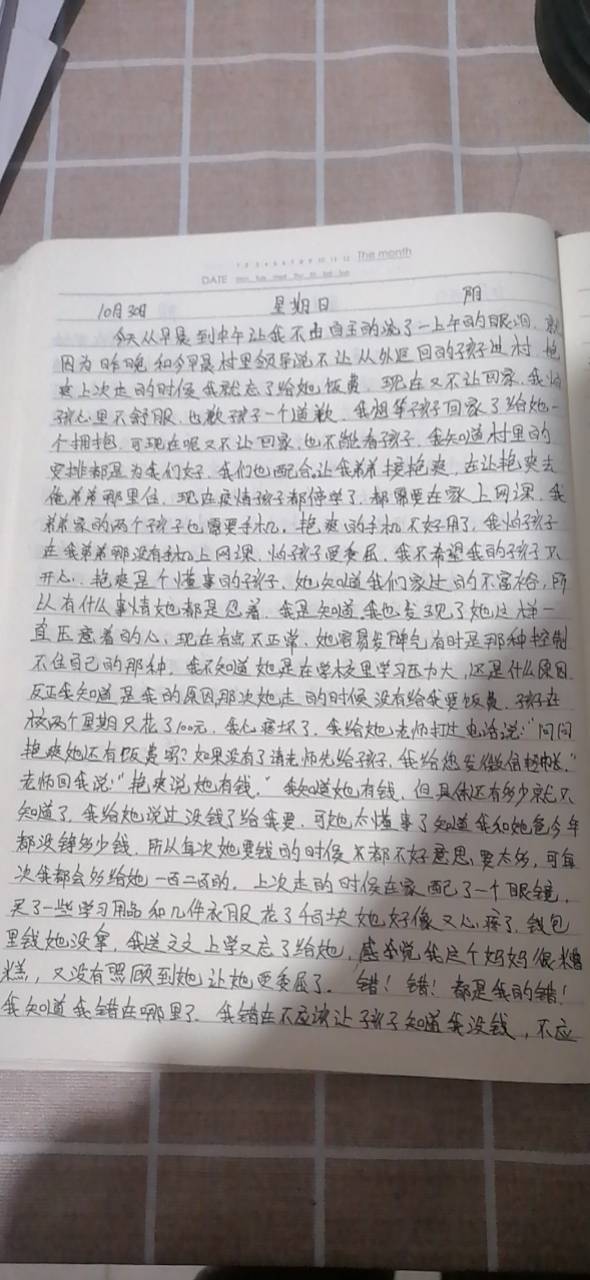 The month
DATE
10月30日 星期日 阴
今天从早晨到中午让我不由自主的流了一上午的眼泪，就
因为昨晚和今早晨村里领导说不让从外返回的孩子进村，艳
爽上次走的时候我就忘了给她饭费，现在又不让回家，我怕
孩心里不舒服，也欠孩子一个道歉，我想等孩子回家了给她一
个拥抱，可现在呢又不让回家，也不能看孩子，我知道村里的
安排都是为我们好，我们也配合。让我弟弟接艳爽，在让艳爽去
他弟弟那里住，现在疫情孩子都停学了，都需要在家上网课，我
弟弟家的两个孩子也需要手机，艳爽的手机不好用了，我怕孩子
在我弟弟那没有手机上网课，怕孩子受委屈，我不希望我的孩子不
开心，艳爽是个懂事的孩子，她知道我们家过的不富裕，所
以有什么事情她都是忍着，我是知道。我也发现了她这样一
直压意着的心，现在有点不正常，她容易发脾气有时是那种控制
不住自己的那种，我不知道她是在学校里学习压力大，还是什么原因
反正我知道是我的原因，那次她走的时候没有给我要饭费，孩子在
校两个星期只花了100元，我心疼坏了，我给她老师打过电话说：“问问
艳爽她还有饭费吗？如果没有了请老师先给孩子，我给您发微信
老师回我说：“艳爽说她有钱。”我知道她有钱，但具体还有多少就不
知道了，我给她说过没钱了给我要，可她太懂事了知道我和她爸今年
都没锝多少钱，所以每次她要钱的时候都不好意思要太多，可每
次我都会多给她一百二百的，上次走的时候在家配了一个眼镜，
买了一些学习用品和几件衣服花了千块她好像又心疼了，钱包
里钱她没拿，我送文文上学又忘了给她，感觉我这个妈妈很糟
糕，又没有照顾到她让她受委屈了。错！错！都是我的错！
我知道我错在哪里了，我错在不应该让孩子知道我没钱，不应